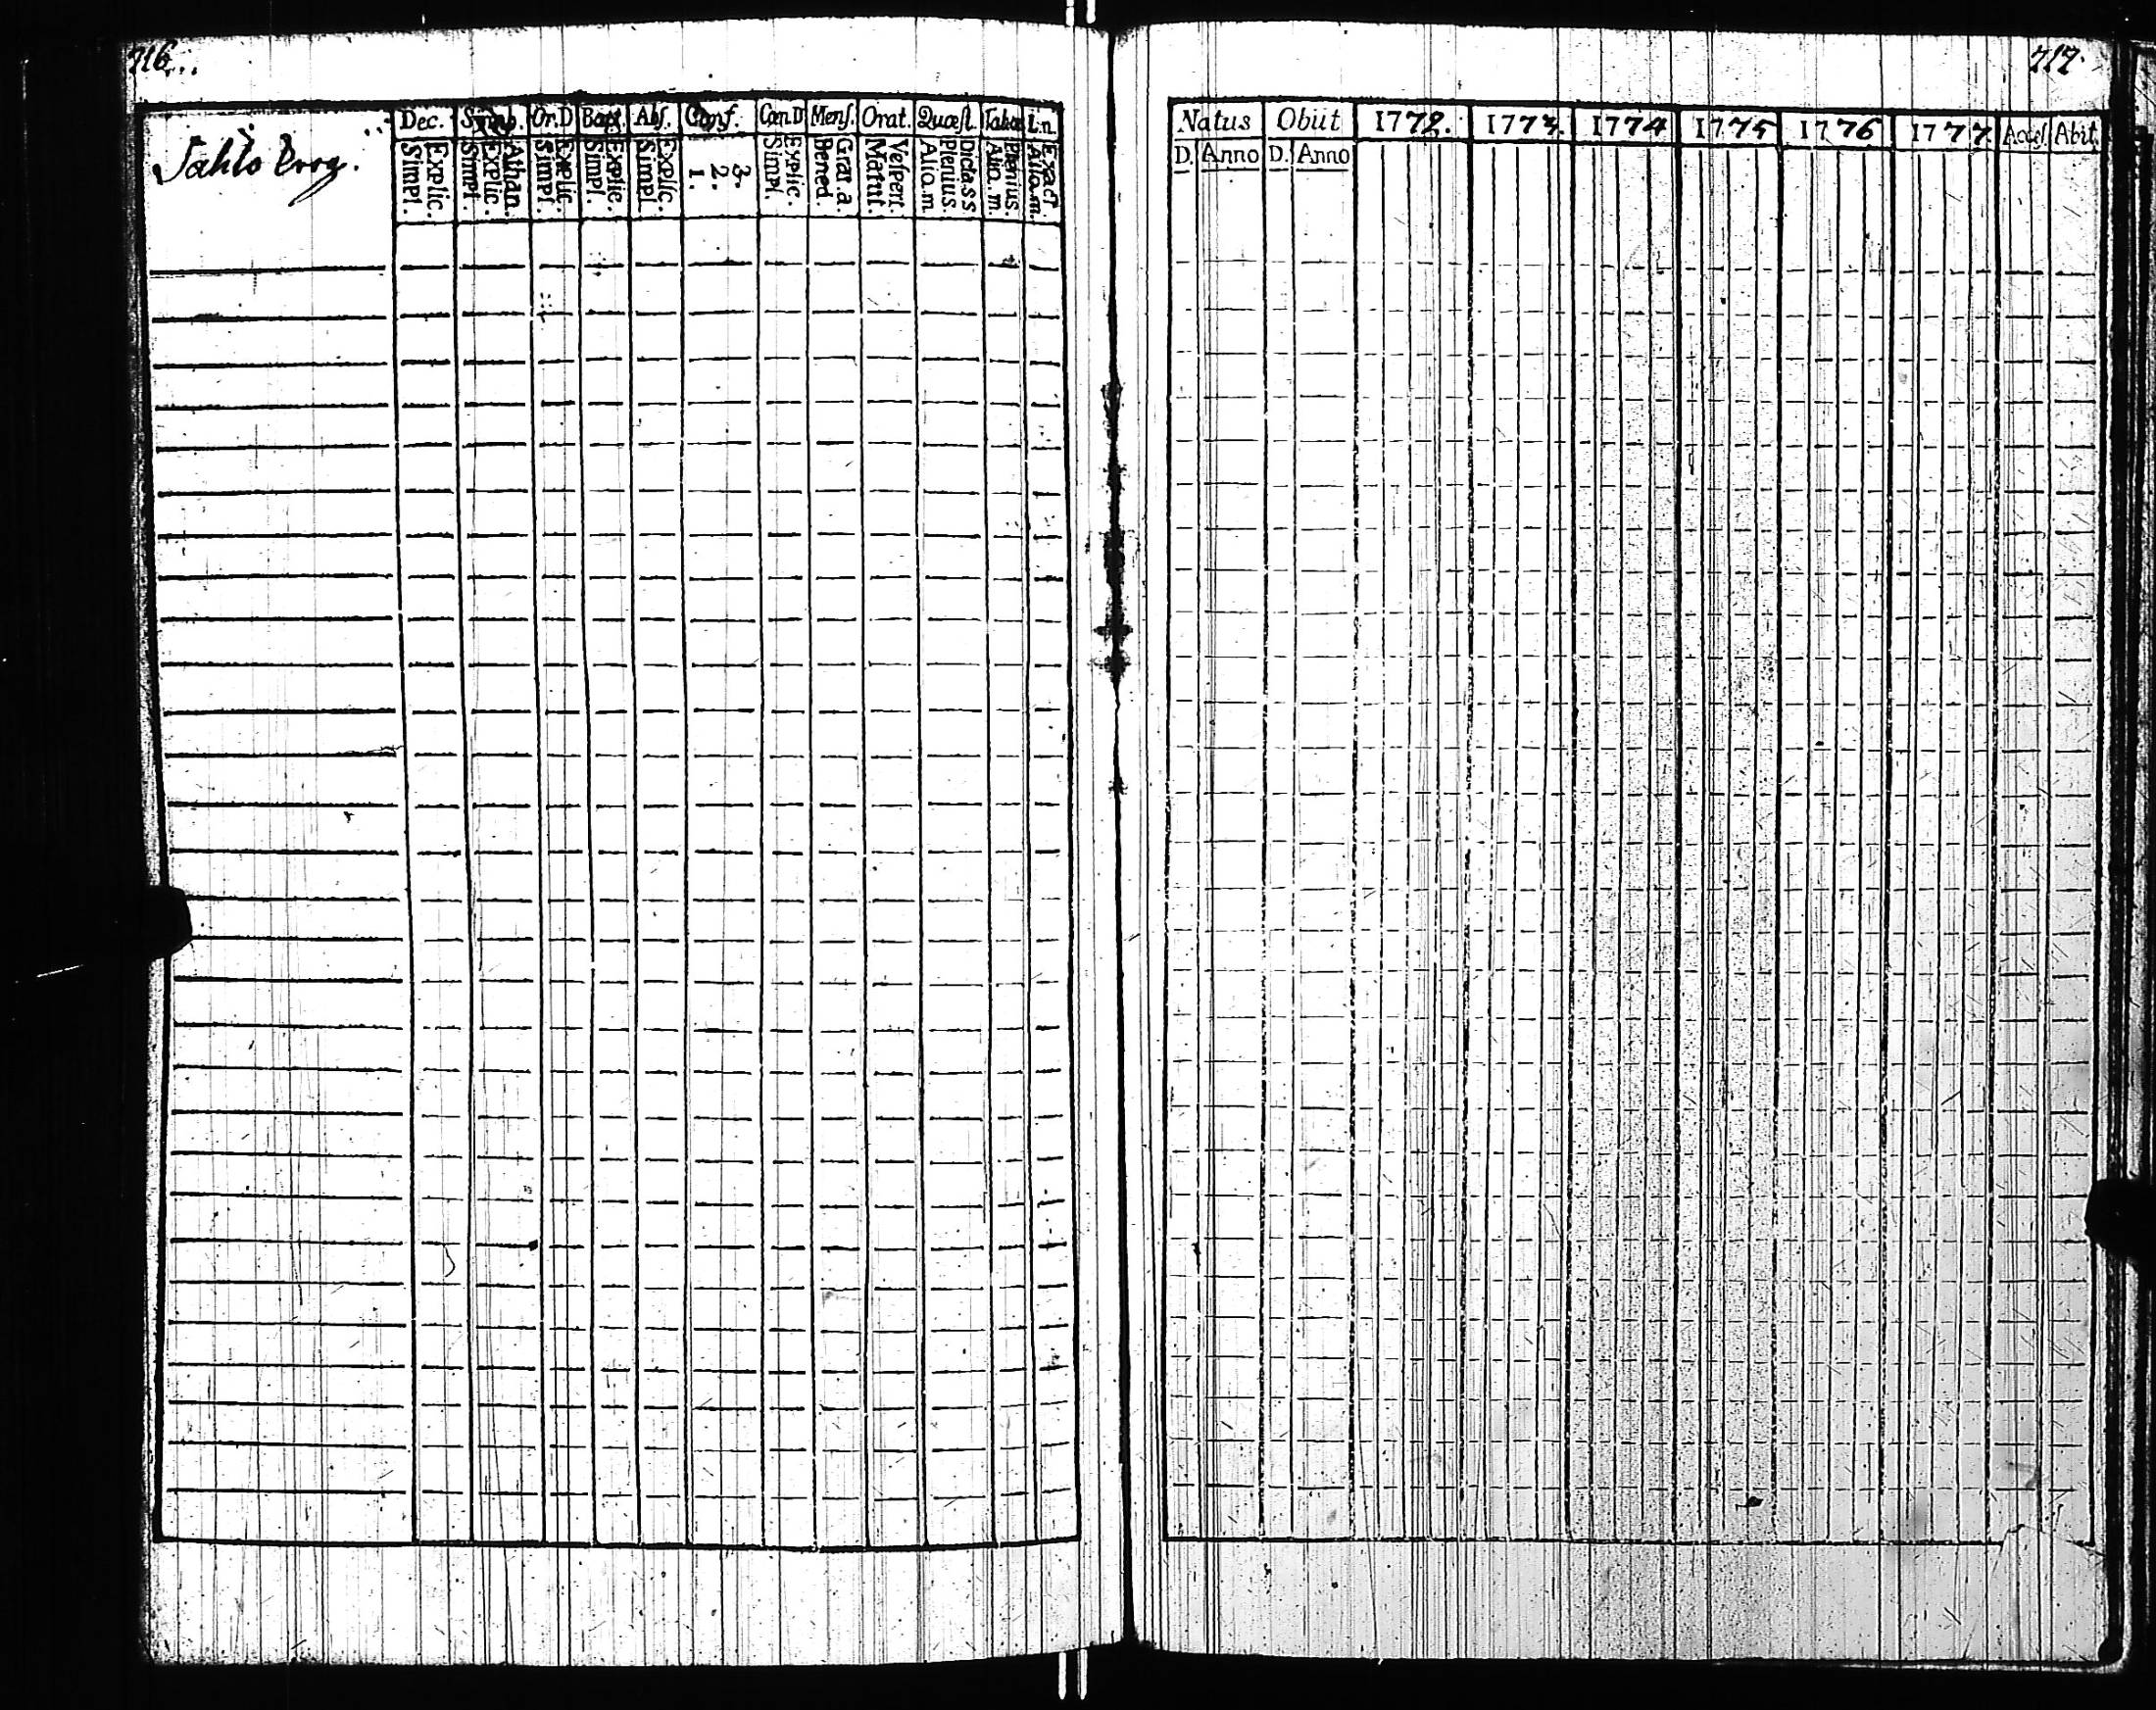 716.
Dec. Symb. Or. D Bapt. Abs. Conf. Cœn. D Mens. Orat. Quæst. Tabæ L.n.
Simpl. Explic. Simpl. Explic. Athan. Simpl. Explic. Simpl. Explic. Simpl. Explic. 1. 2. 3. Simpl. Explic. Bened. Grat. a. Matut. Vespert. Alio. m Plenius. Dicta. s s Alio. m. Plenius. Alio. m. Exact.
717.
Natus Obiit 1772. 1773. 1774 1775 1776 1777. Access. Abit.
D. Anno D. Anno